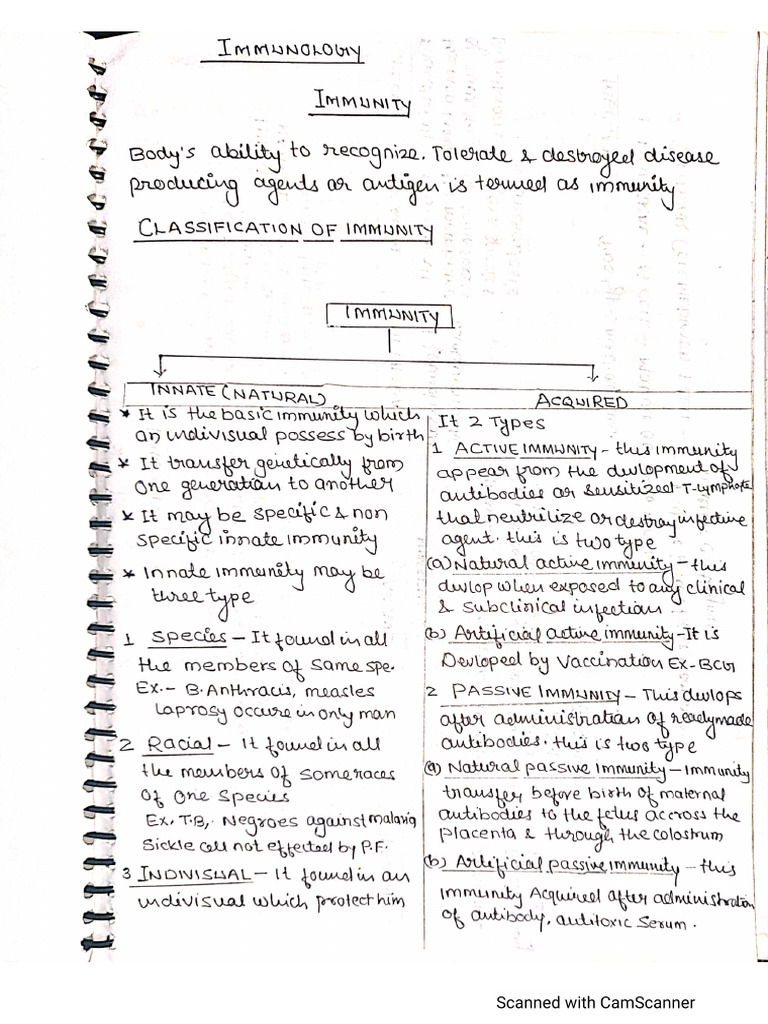 IMMUNOLOGY
IMMUNITY
Body's ability to recognize. Tolerate & destroyed disease
producing agents or antigen is termed as immunity
CLASSIFICATION OF IMMUNITY
IMMUNITY
INNATE (NATURAL)
* It is the basic immunity which
an indivisual possess by birth
* It transfer genetically from
one generation to another
* It may be specific & non
specific innate immunity
* Innate immunity may be
three type
1 Species - It found in all
the members of same spe.
Ex.- B. Anthracis, measles
Laprosy occure in only man
2 Racial - It found in all
the members of some races
of one species
Ex, T.B, Negroes against malaria
Sickle cell not effected by P.F.
3 INDIVISUAL - It found in an
indivisual which protect him
ACQUIRED
It 2 Types
1 ACTIVE IMMUNITY - this immunity
appear from the devlopment of
antibodies or sensitized T-lymphote
that neutrilize or destroy infective
agent. this is two type
(a) Natural active immunity - this
devlop when exposed to any clinical
& subclinical infection.
(b) Artificial active immunity - It is
Devloped by Vaccination Ex-BCG
2 PASSIVE IMMUNITY - This devlops
after administration of readymade
antibodies. this is two type
(a) Natural passive immunity - Immunity
transfer before birth of maternal
antibodies to the fetus accross the
placenta & through the colostrum
(b) Artificial passive immunity - this
immunity Acquired after administration
of antibody, antitoxic Serum.
Scanned with CamScanner